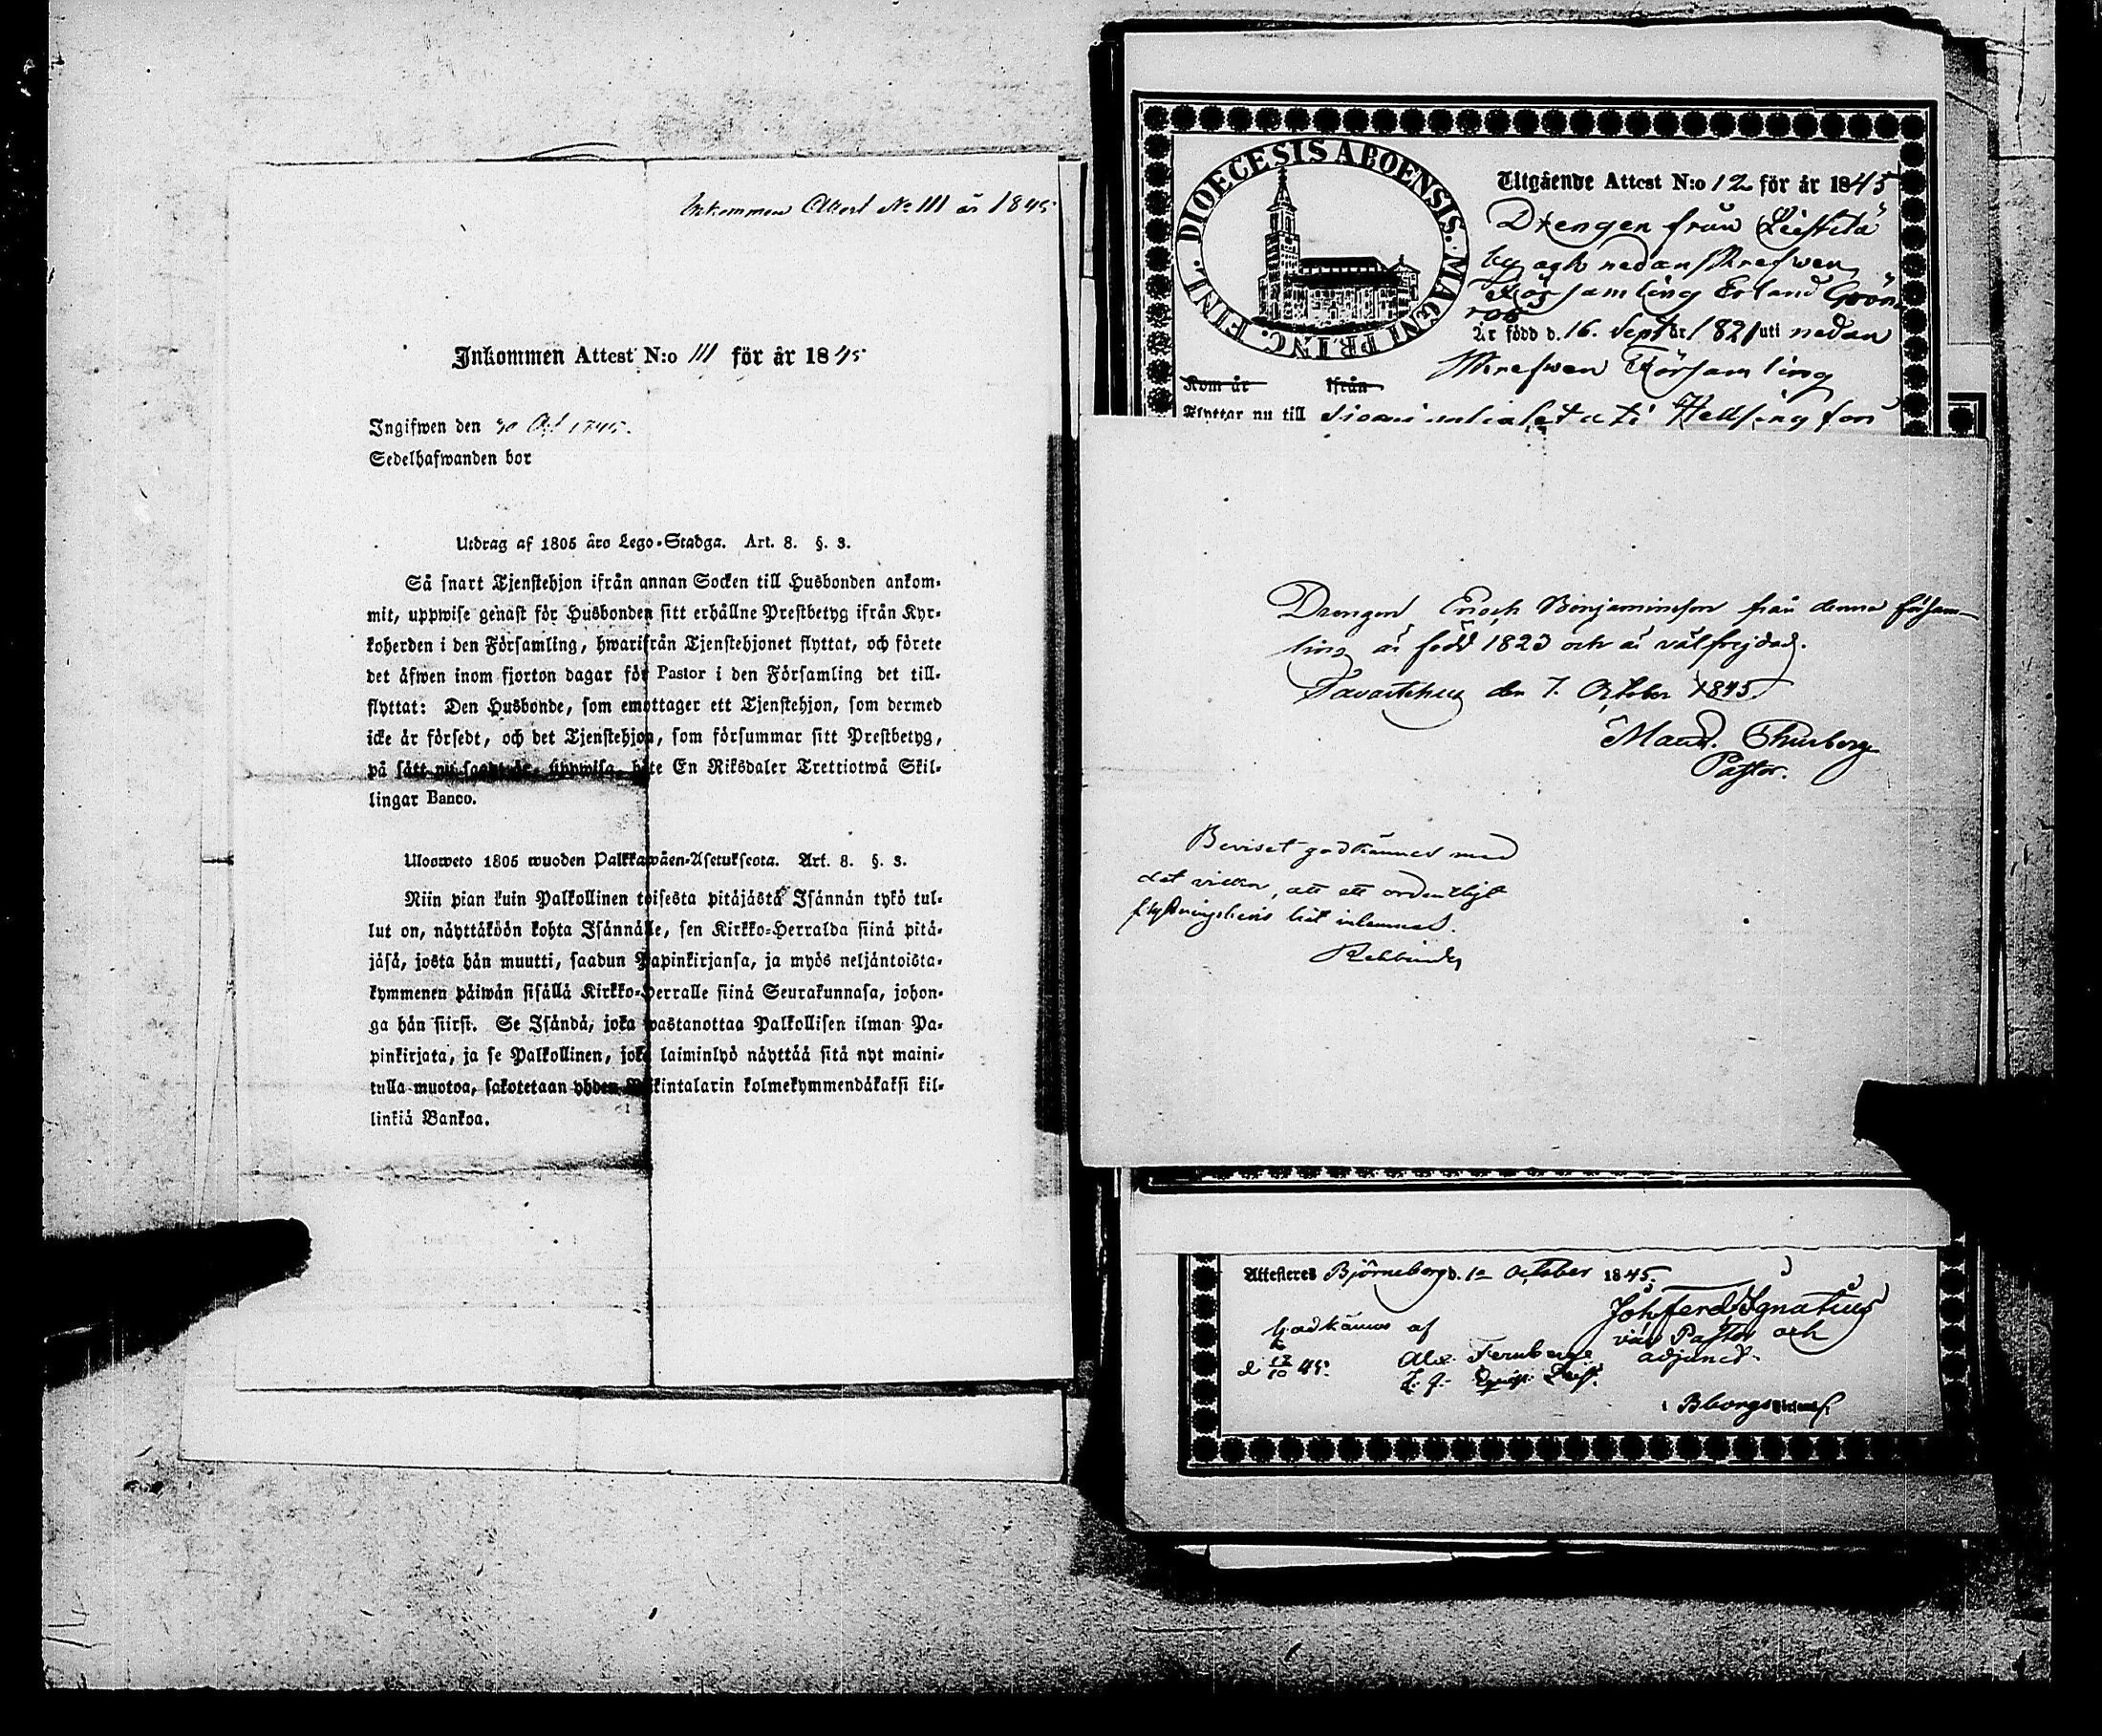 Inkommen Attest No III år 1845
Inkommen Attest N:o III för år 1845
Ingifwen den 30 Oct 1845.
Sedelhafwanden bor
Utdrag af 1805 års Lego-Stadga. Art. 8. §. 3.
Så snart Tjenstehjon ifrån annan Socken till Husbonden ankom-
mit, uppwise genast för Husbonden sitt erhållne Prestbetyg ifrån Kyr-
koherden i den Församling, hwarifrån Tjenstehjonet flyttat, och förete
det äfwen inom fjorton dagar för Pastor i den Församling det till-
flyttat: Den Husbonde, som emottager ett Tjenstehjon, som dermed
icke är försedt, och det Tjenstehjon, som försummar sitt Prestbetyg,
på sätt nu sagdt är, uppwisa, böte En Riksdaler Trettiotwå Skil-
lingar Banco.
Ulosweto 1805 wuoden Palkkawäen-Asetuksesta. Art. 8. §. 3.
Niin pian kuin Palkollinen toisesta pitäjästä Isännän tykö tul-
lut on, näyttäköön kohta Isännälle, sen Kirkko-Herralda siinä pitä-
jäsä, josta hän muutti, saadun Papinkirjansa, ja myös neljäntoista-
kymmenen päiwän sisällä Kirkko-Herralle siinä Seurakunnasa, johon-
ga hän siirsi. Se Isändä, joka wastanottaa Palkollisen ilman Pa-
pinkirjata, ja se Palkollinen, joka laiminlyö näyttää sitä nyt maini-
tulla muotoa, sakotetaan yhden Riikintalarin kolmekymmendäkaksi kil-
linkiä Bankoa.
DIOECESIS ABOENSIS. MAGNI PRINC. FINL.
Utgående Attest N:o 12 för år 1845
Drengen från Leistilä
by och nedanskrefwen
Församling Erland Grön
roos
är född d. 16. Sept år 1821 uti nedan
skrefwen Församling
Kom år Ifrån
Flyttar nu till Helsingfors
Drengen Enoch Benjaminsson från denna försam-
ling är född 1823 och är välfrejdad.
Tavastehus den 7. October 1845
Maur. Thurberg
Pastor.
Beviset godkännes med
det vilkor, att ett ordentligt
flyttningsbevis hit inlemnas.
Rehbinder
Attesteras Björneborg d. 10 October 1845.
Joh Ferd Ignatius
vice Pastor och
adjunct.
Godkännes af
d 12/10 45. Alex. Fernberg
i Bborgs